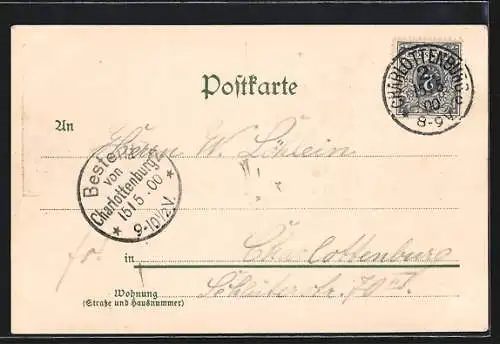 CHARLOTTENBURG 2
15 5
00
8-9 V.
Postkarte
An Herrn W.
Bestellt
von
Charlottenburg
15/5.00
9-10½V.
in Charlottenburg
Wohnung Schlüterstr. 70
(Straße und Hausnummer)